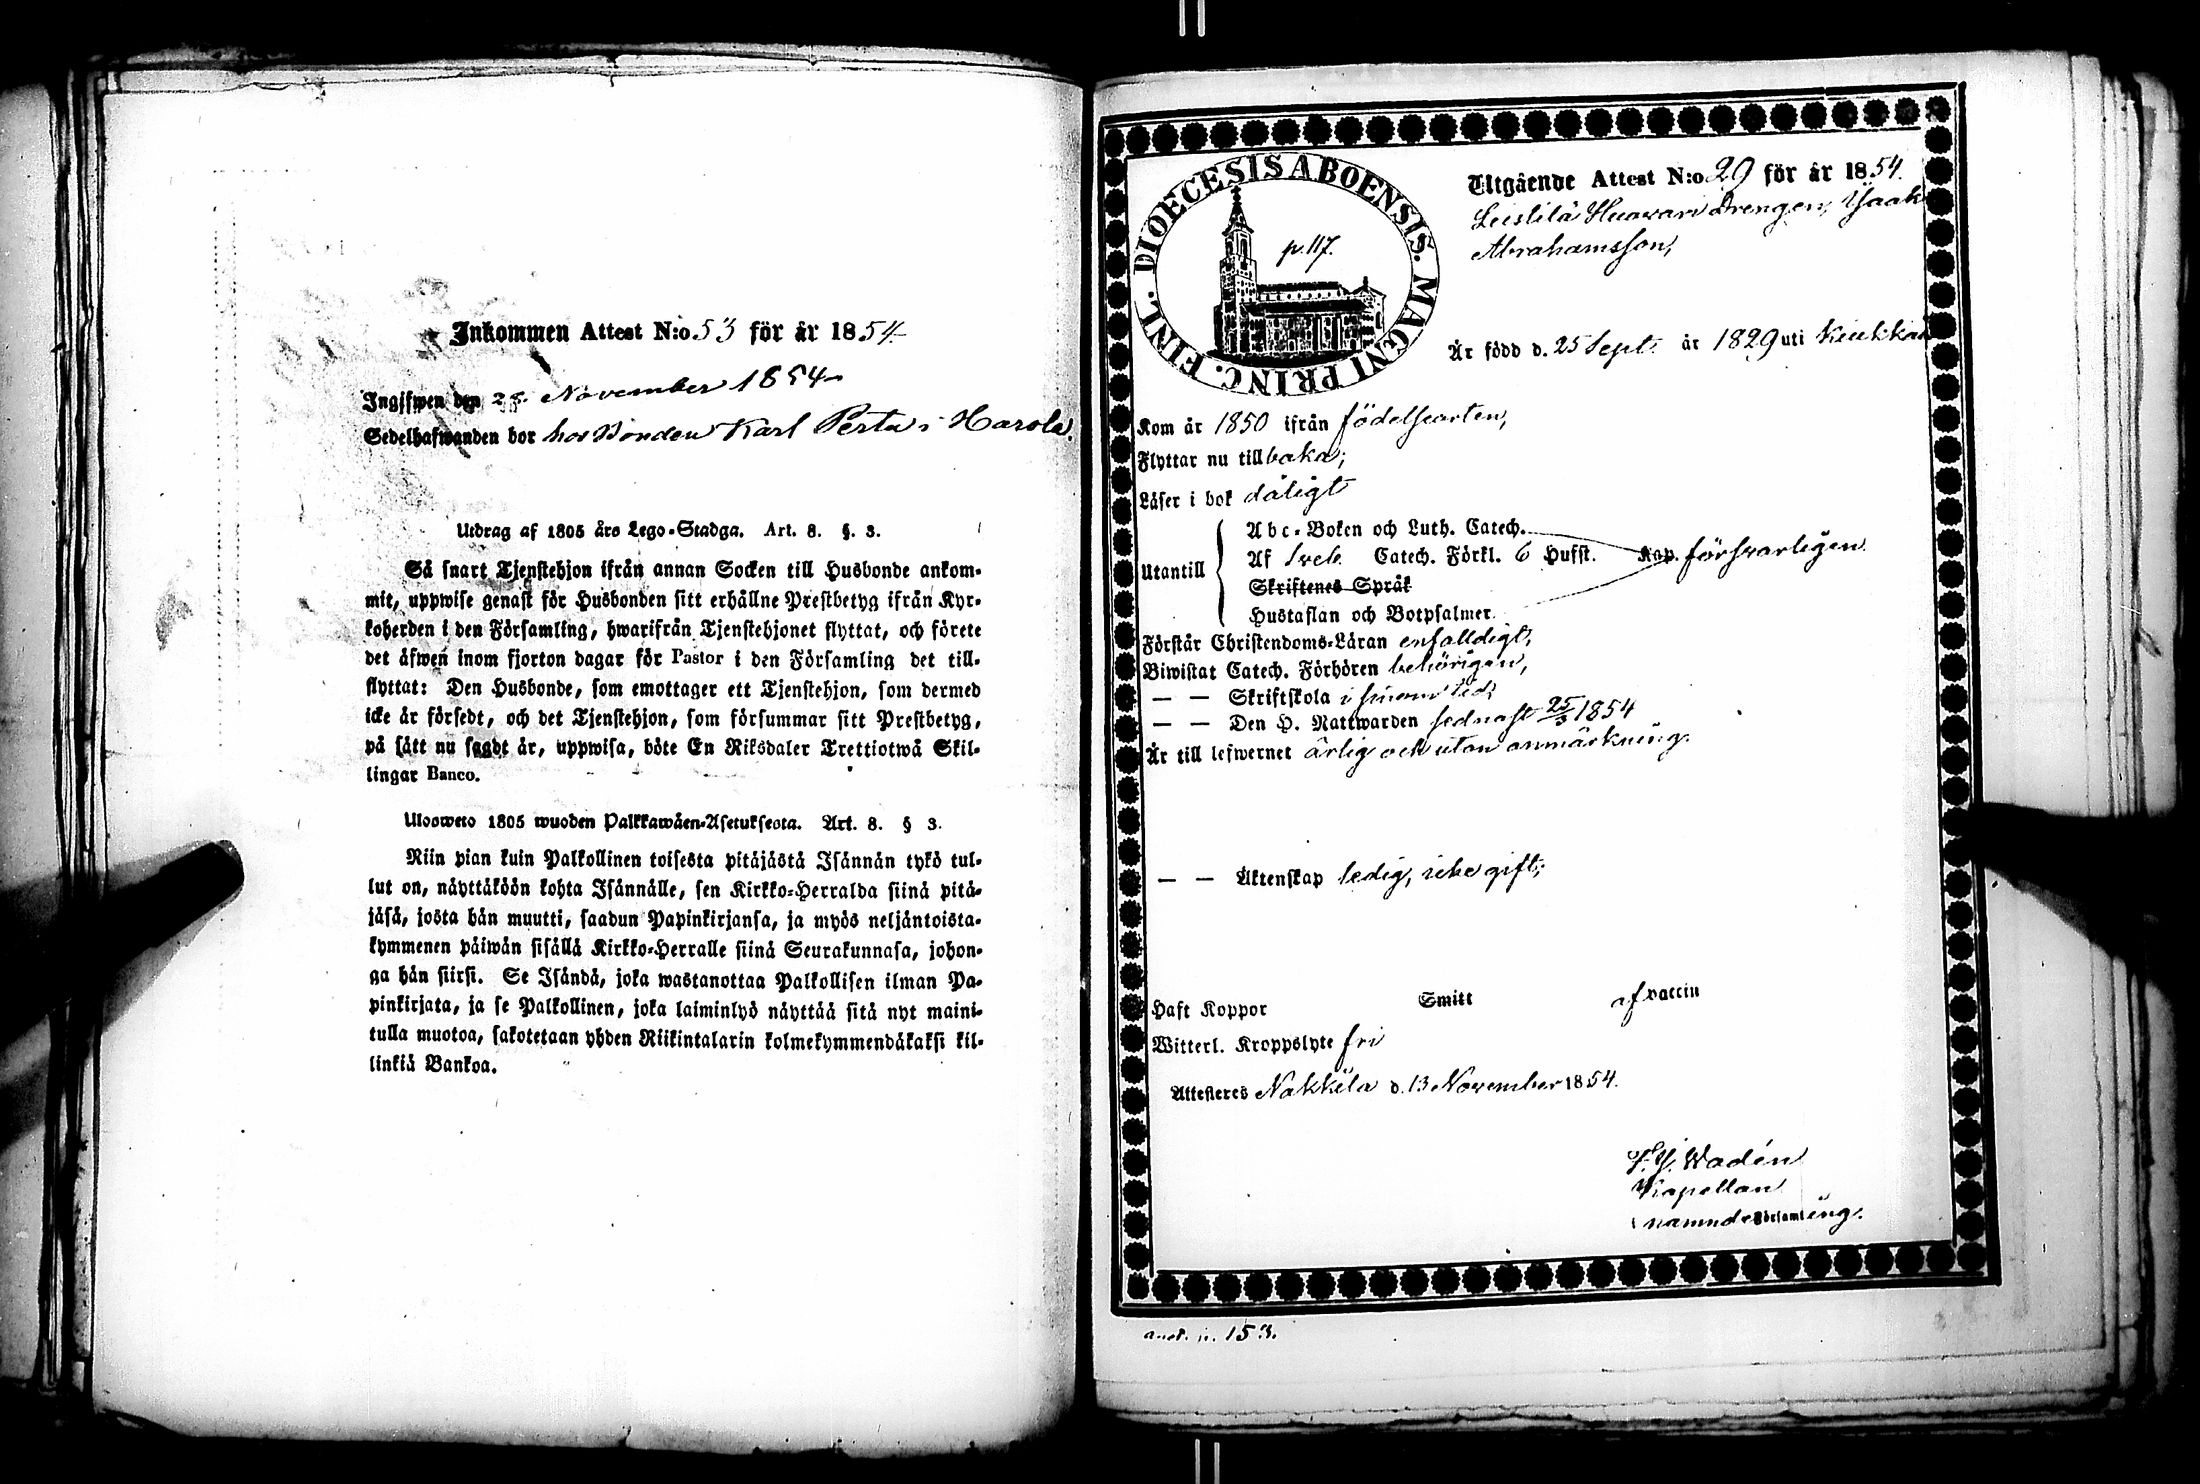 Inkommen Attest N:o 53 för år 1854
Ingifwen den 28 November 1854
Sedelhafwanden bor hos Bonden Karl Pertu i Harola.
Utdrag af 1805 års Lego-Stadga. Art. 8. §. 3.
Så snart Tjenstehjon ifrån annan Socken till Husbonde ankom-
mit, uppwise genast för Husbonden sitt erhållne Prestbetyg ifrån Kyr-
koherden i den Församling, hwarifrån Tjenstehjonet flyttat, och förete
det äfwen inom fjorton dagar för Pastor i den Församling det till-
flyttat: Den Husbonde, som emottager ett Tjenstehjon, som dermed
icke är försedt, och det Tjenstehjon, som försummar sitt Prestbetyg,
på sätt nu sagdt är, uppwisa, böte En Riksdaler Trettiotwå Skil-
lingar Banco.
Uloosweto 1805 wuoden Palkkawäen-Asetuksesta. Art. 8. § 3.
Niin pian kuin Palkollinen toisesta pitäjästä Isännän tykö tul-
lut on, näyttäköön kohta Isännälle, sen Kirkko-Herralda siinä pitä-
jäsä, josta hän muutti, saadun Papinkirjansa, ja myös neljäntoista-
kymmenen päiwän sisällä Kirkko-Herralle siinä Seurakunnasa, johon-
ga hän siirsi. Se Isändä, joka wastanottaa Palkollisen ilman Pa-
pinkirjata, ja se Palkollinen, joka laiminlyö näyttää sitä nyt maini-
tulla muotoa, sakotetaan yhden Riikintalarin kolmekymmendäkaksi kil-
linkiä Bankoa.
DIOECESIS ABOENSIS. MAGNI PRINC. FINL.
p. 117.
Utgående Attest N:o 29 för år 1854.
Leistilä Huovari Drengen, Isaak
Abrahamsson,
Är född d. 25 Sept. år 1829 uti Kiukkais
Kom år 1850 ifrån födelseorten,
Flyttar nu tillbaka;
Läser i bok dåligt
Utantill
Abc-Boken och Luth. Catech.
Af Sveb. Catech. Förkl. 6 Hufst. Kap. försvarligen
Skriftenes Språk
Hustaflan och Botpsalmer.
Förstår Christendoms-Läran enfaldigt,
Biwistat Catech. Förhören behörigen,
— — Skriftskola i sinom tid;
— — Den H. Nattwarden sednast 25/3 1854
Är till lefwernet ärlig och utan anmärkning.
— — Äktenskap ledig, icke gift;
Haft Koppor Smitt af vaccin
Witterl. Kroppslyte fri
Attesteres Nakkila d. 13 November 1854.
Wadén
Kapellan
nämnde Församling.
153.